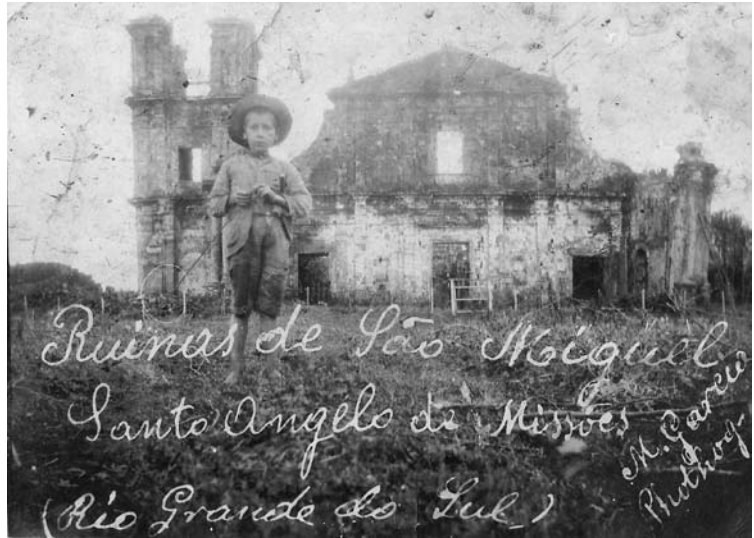 Ruinas de São Miguel
Santo Angelo de Missões
(Rio Grande do Sul)
M. Garcia
Photog-